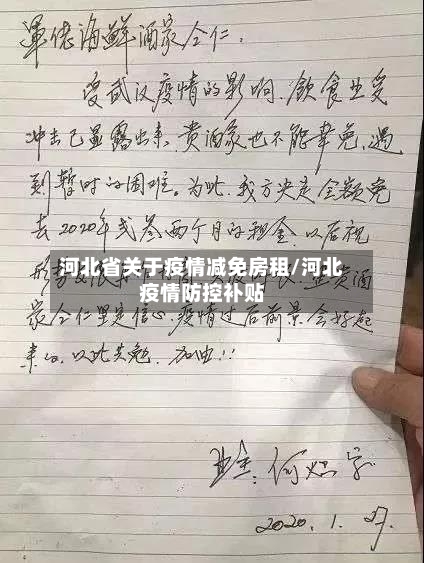 軍佬海鮮酒家仝仁:
受武汉疫情的影响,飲食业受
冲击已显露出来,贵酒家也不能幸免,遇
到暂时的困难。为此,我方决定全额免
去2020年弍叁两个月的租金,以后视
河北省关于疫情减免房租/河北
疫情防控补贴
家仝仁坚定信心,疫情过后前景会好起
来的,以此共勉,加油!!
业主:何
2020.1.27.